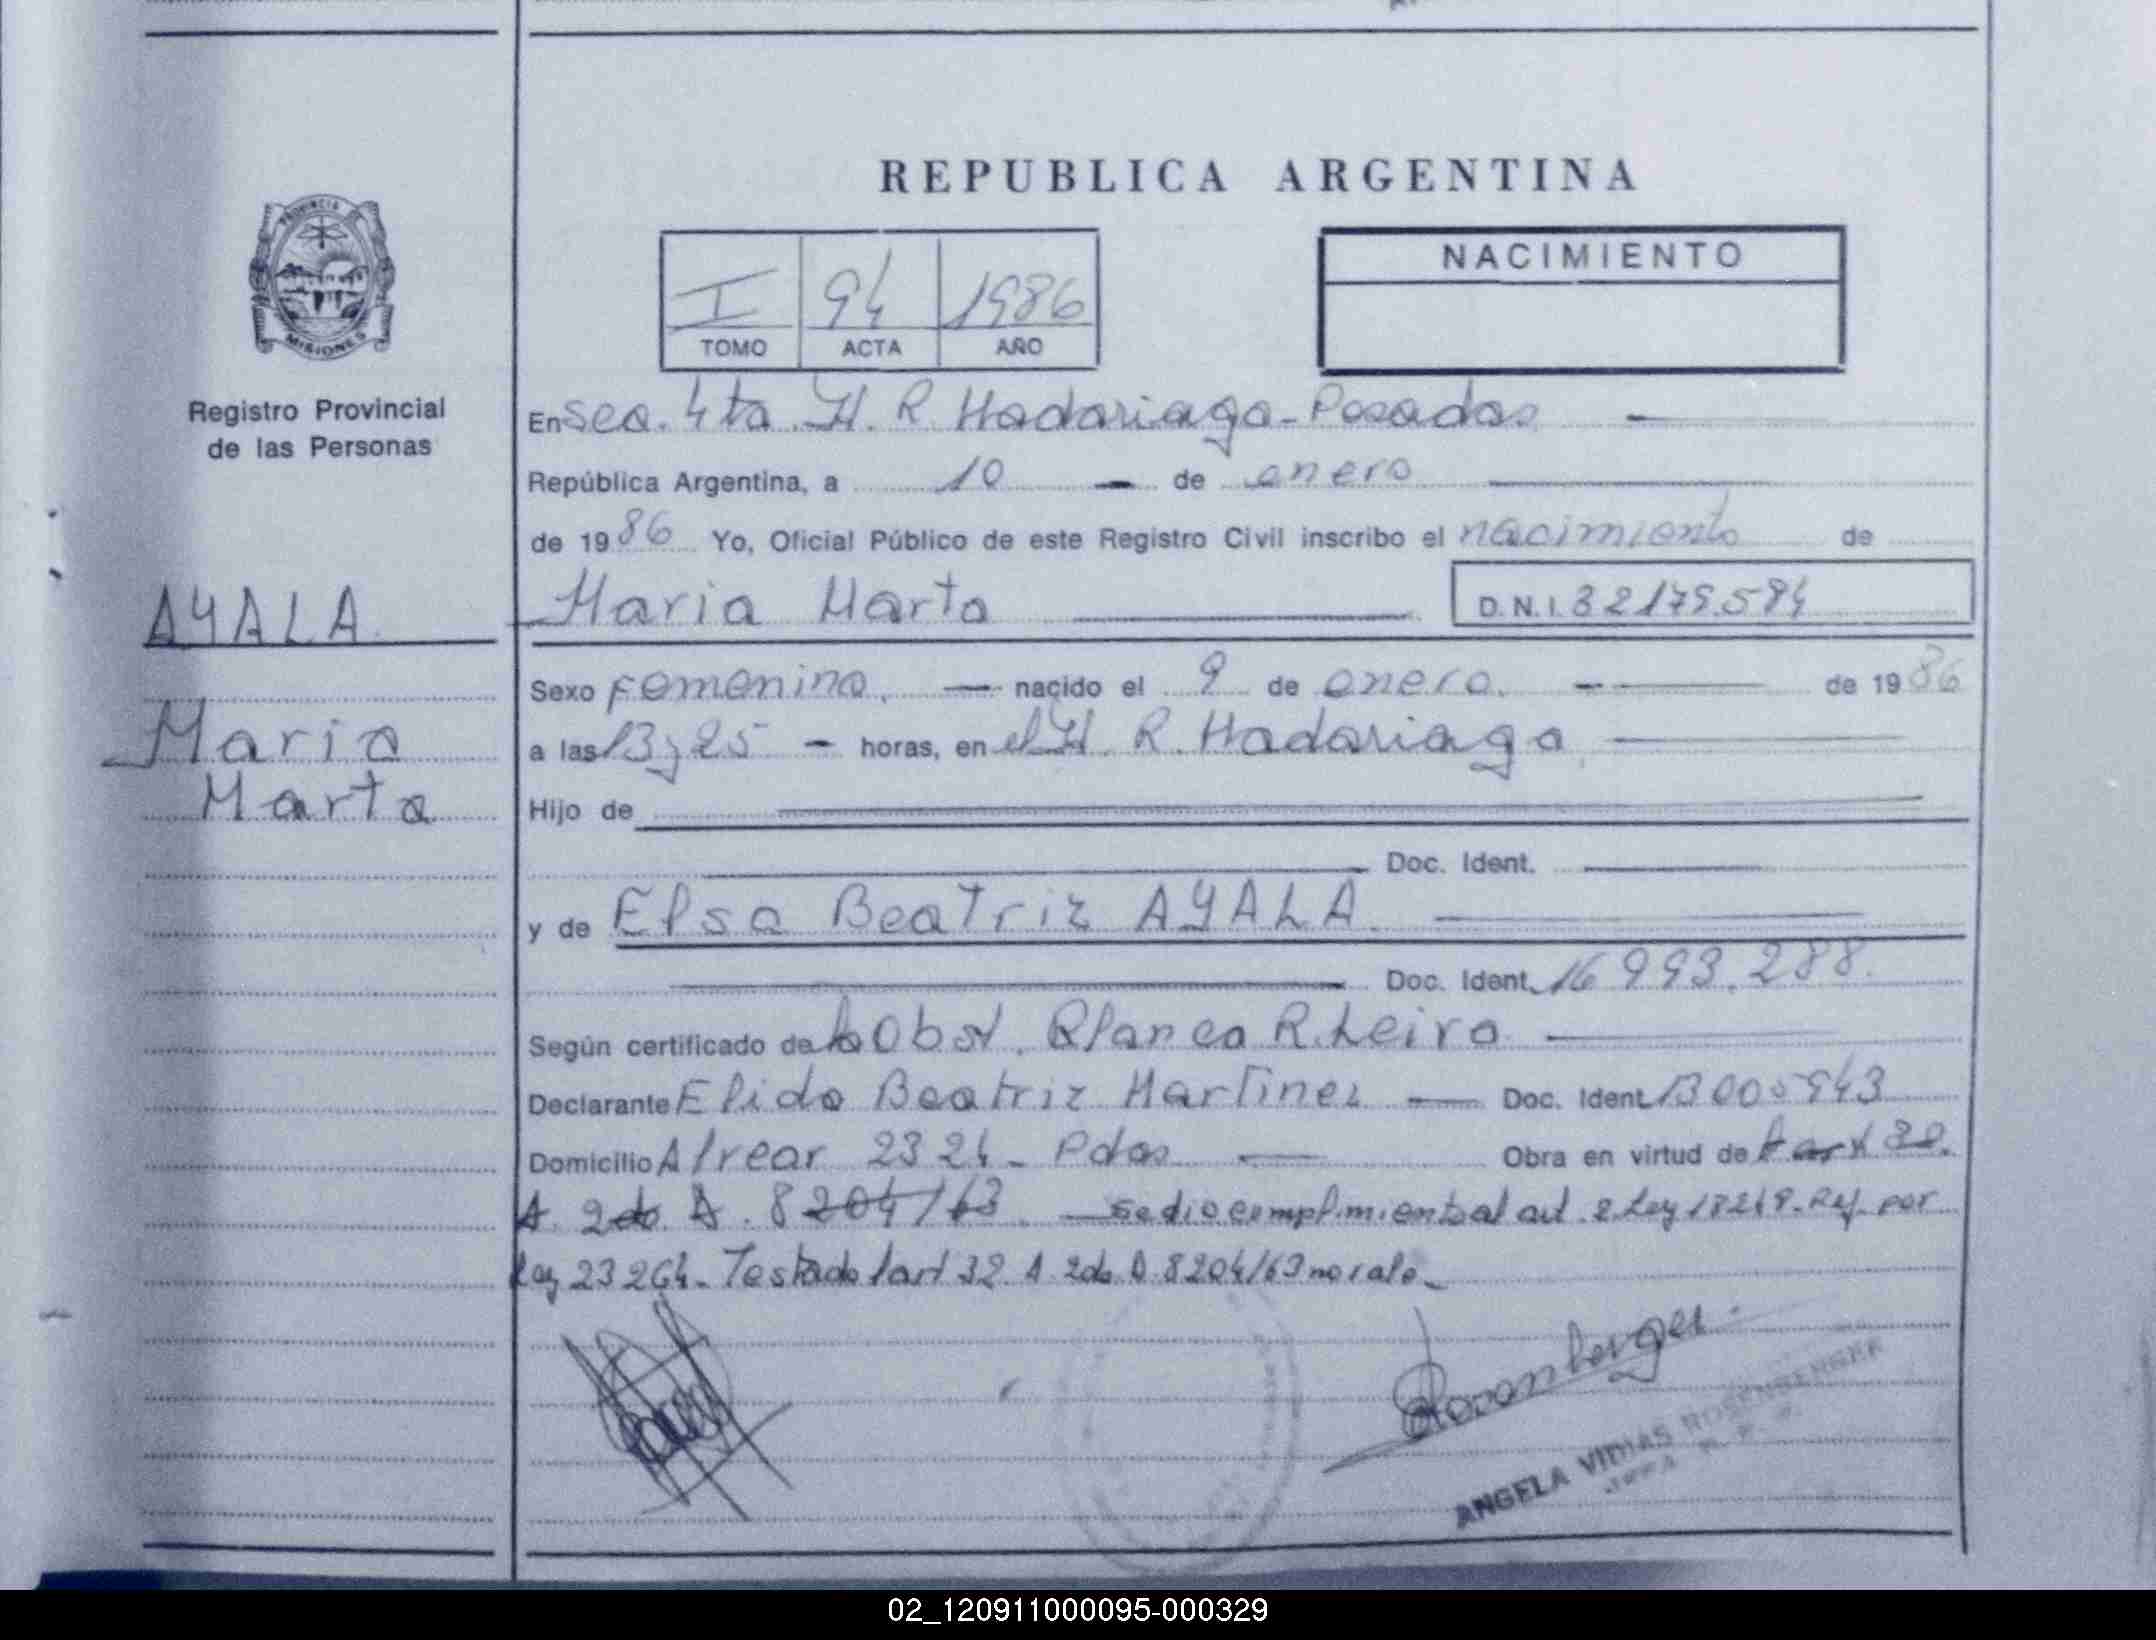 REPUBLICA ARGENTINA
PROVINCIA
MISIONES
I 94 1986
TOMO ACTA AÑO
NACIMIENTO
Registro Provincial
de las Personas
En Sec. 4ta H. R. Madariaga - Posadas
República Argentina, a 10 de enero
de 1986 Yo, Oficial Público de este Registro Civil inscribo el nacimiento de
AYALA
Maria Marta
D.N.I. 32179.584
Maria
Marta
Sexo Femenino, nacido el 9 de enero. de 1986
a las 13,25 horas, en el H. R. Madariaga
Hijo de
Doc. Ident.
y de Elsa Beatriz AYALA.
Doc. Ident. 16 993.288.
Según certificado de la Obst. Blanca R. Leiva
Declarante Elida Beatriz Martinez Doc. Ident.
Domicilio Alvear 2324 - Pdas Obra en virtud de art 32.
A. 2do D. 8204/63. Se dio cumplimiento al art. 2 Ley 18248. Ref. por
Ley 23264. Testado art 32 A 2do D 8204/63 no vale.
Rosenberger
ANGELA VIDIAS ROSENBERGER
02_120911000095-000329